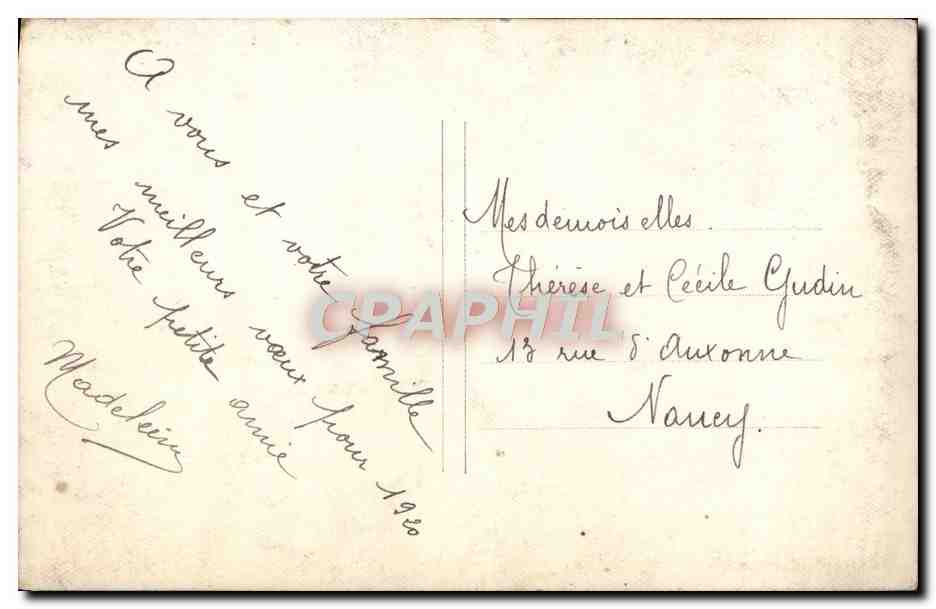 A vous et votre famille
mes meilleurs vœux pour 1920
Votre petite amie
Madeleine
Mesdemoiselles.
Thérèse et Cécile Gudin
13 rue d'Auxonne
Nancy.
CPAPHIL